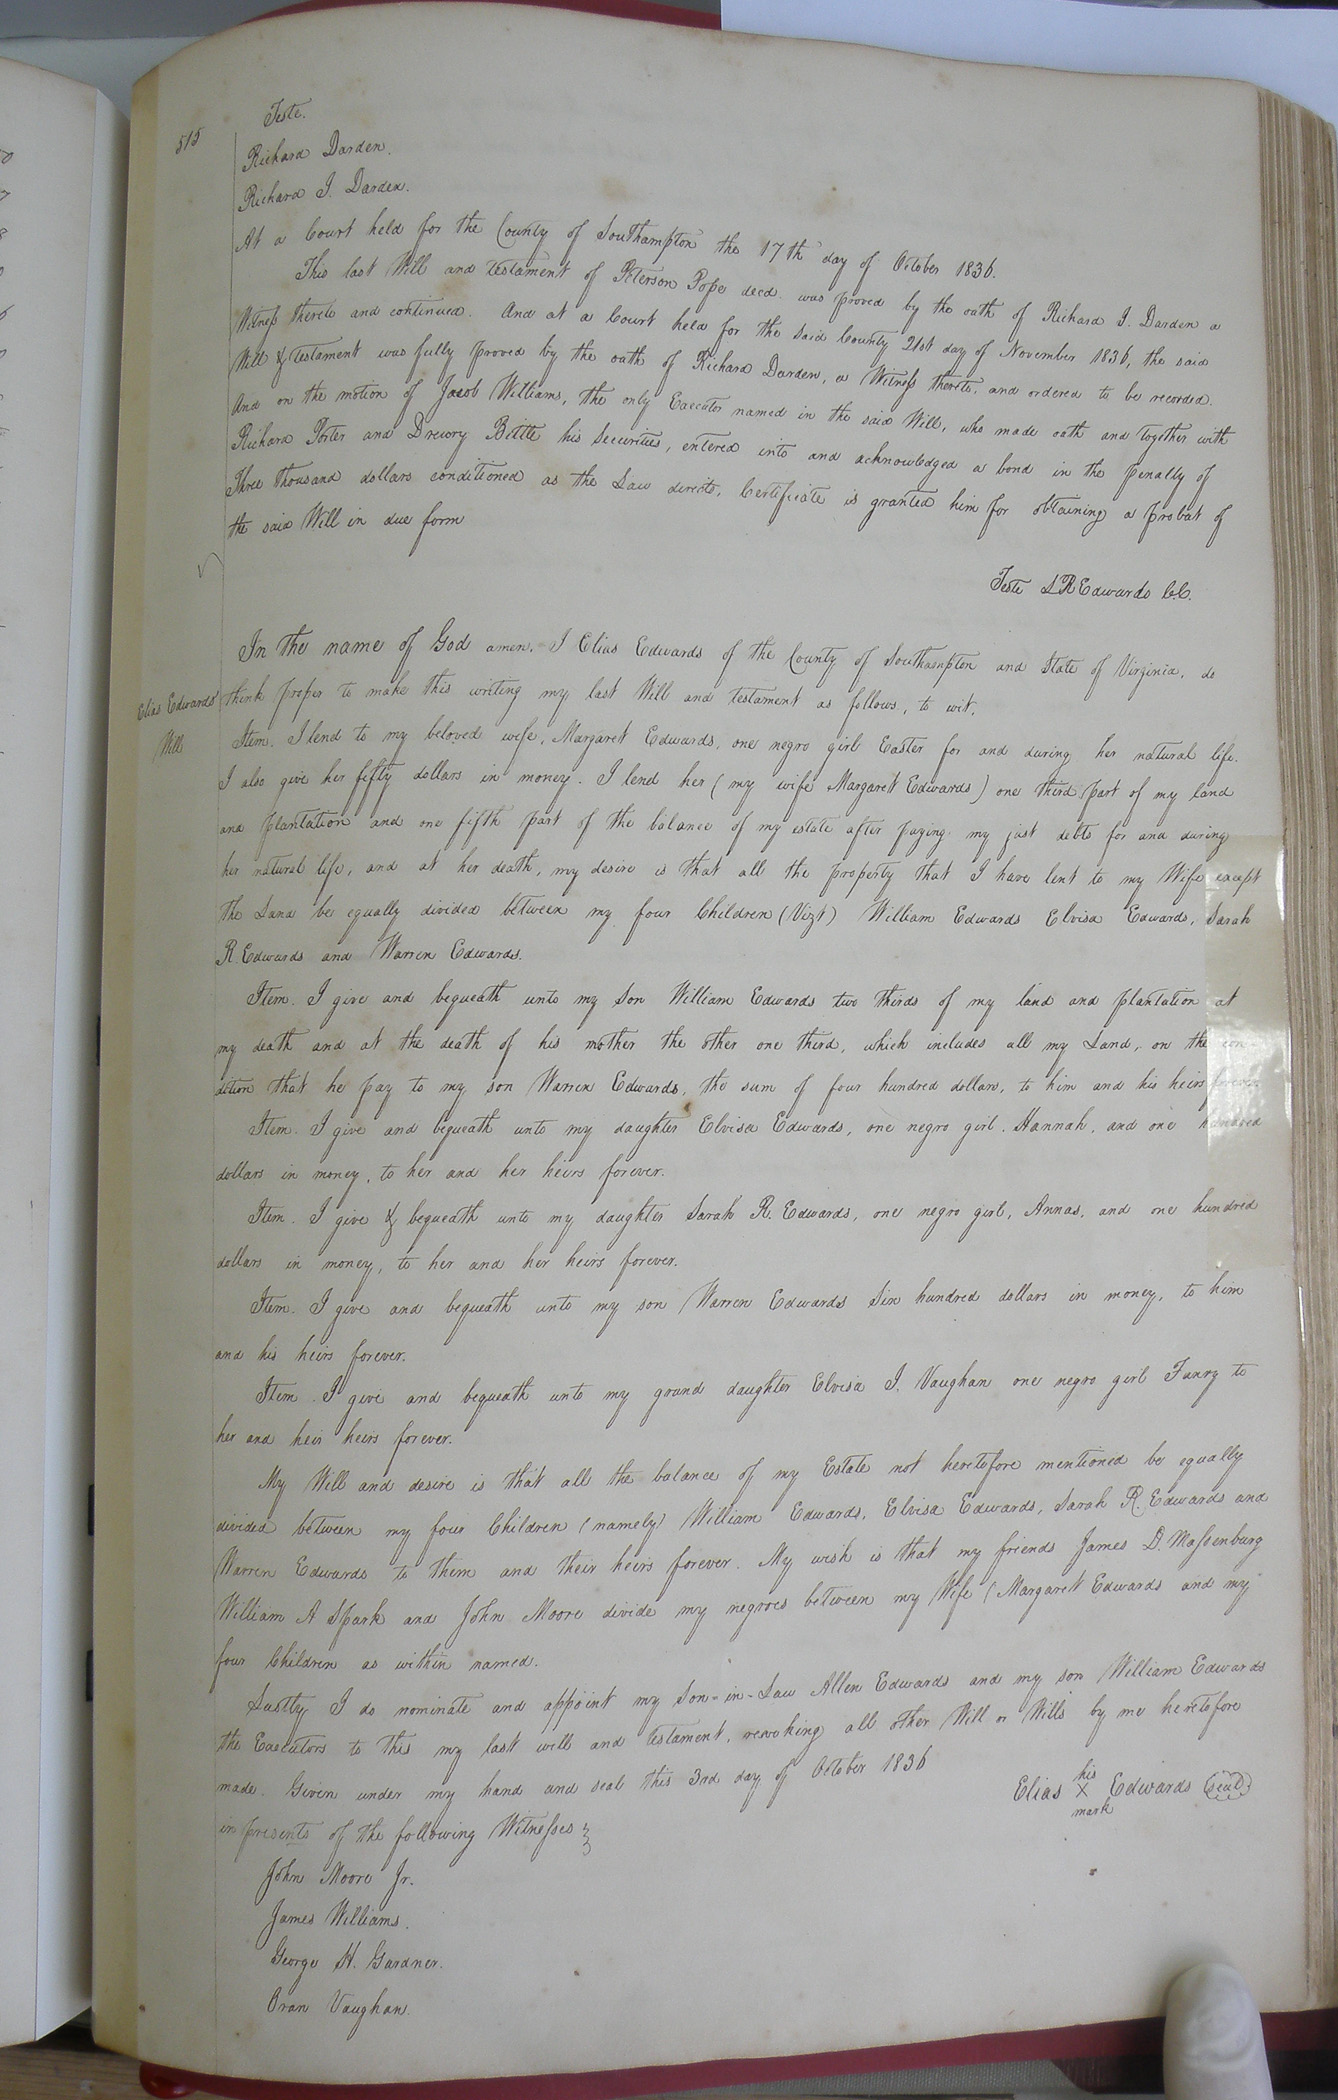 515
Teste.
Richard Darden.
Richard J. Darden.
At a Court held for the County of Southampton the 17th day of October 1836.
This last Will and testament of Peterson Pope decd. was proved by the oath of Richard J. Darden a
Witness thereto and continued. And at a Court held for the said County 21st day of November 1836, the said
Will & testament was fully proved by the oath of Richard Darden, a Witness thereto, and ordered to be recorded.
And on the motion of Jacob Williams, the only Executor named in the said Will, who made oath and together with
Richard Porter and Drewry Bittle his Securities, entered into and acknowledged a bond in the penalty of
Three thousand dollars conditioned as the Law directs, Certificate is granted him for obtaining a probat of
the said Will in due form
Teste L R Edwards C.C.
In the name of God amen. I Elias Edwards of the County of Southampton and State of Virginia, do
Elias Edwards' Will
think proper to make this writing my last Will and testament as follows, to wit.
Item. I lend to my beloved wife, Margaret Edwards, one negro girl Easter for and during her natural life.
I also give her fifty dollars in money. I lend her (my wife Margaret Edwards) one third part of my land
and plantation and one fifth part of the balance of my estate after paying my just debts for and during
her natural life, and at her death, my desire is that all the property that I have lent to my Wife except
the Land be equally divided between my four Children (Vizt) William Edwards Elvisa Edwards, Sarah
R Edwards and Warren Edwards.
Item. I give and bequeath unto my Son William Edwards two thirds of my land and plantation at
my death and at the death of his mother the other one third, which includes all my Land, on the con-
dition that he pay to my son Warren Edwards, the sum of four hundred dollars, to him and his heirs forever
Item. I give and bequeath unto my daughter Elvisa Edwards, one negro girl, Hannah, and one hundred
dollars in money, to her and her heirs forever.
Item. I give & bequeath unto my daughter Sarah R. Edwards, one negro girl, Annas, and one hundred
dollars in money, to her and her heirs forever.
Item. I give and bequeath unto my son Warren Edwards Six hundred dollars in money, to him
and his heirs forever.
Item. I give and bequeath unto my grand daughter Elvisa J. Vaughan one negro girl Fanny to
her and heir heirs forever.
My Will and desire is that all the balance of my Estate not heretofore mentioned be equally
divided between my four Children (namely) William Edwards, Elvisa Edwards, Sarah R. Edwards and
Warren Edwards to them and their heirs forever. My wish is that my friends James D. Massenburg
William A Spark and John Moore divide my negroes between my Wife (Margaret Edwards and my
four Children as within named.
Lastly I do nominate and appoint my Son-in-Law Allen Edwards and my son William Edwards
the Executors to this my last will and testament, revoking all other Will or Wills by me heretofore
made. Given under my hand and seal this 3rd day of October 1836
Elias his X mark Edwards (seal)
in presents of the following Witnesses
John Moore Jr.
James Williams.
George H. Gardner.
Oran Vaughan.